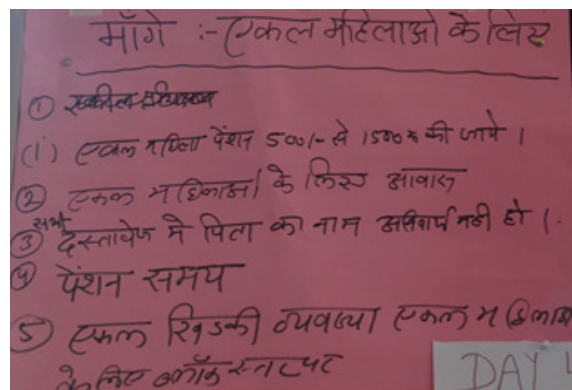 माँगे :- एकल महिलाओ के लिए
①
(1) एकल महिला पेंशन 500/- से 1500रू की जाये ।
② एकल महिलाओं के लिए आवास
सभी
③ दस्तावेज मे पिता का नाम अनिवार्य नही हो ।
④ पेंशन समय
⑤ एकल खिडकी व्यवस्था एकल महिलाओ
के लिए ब्लॉक स्तर पर
DAY